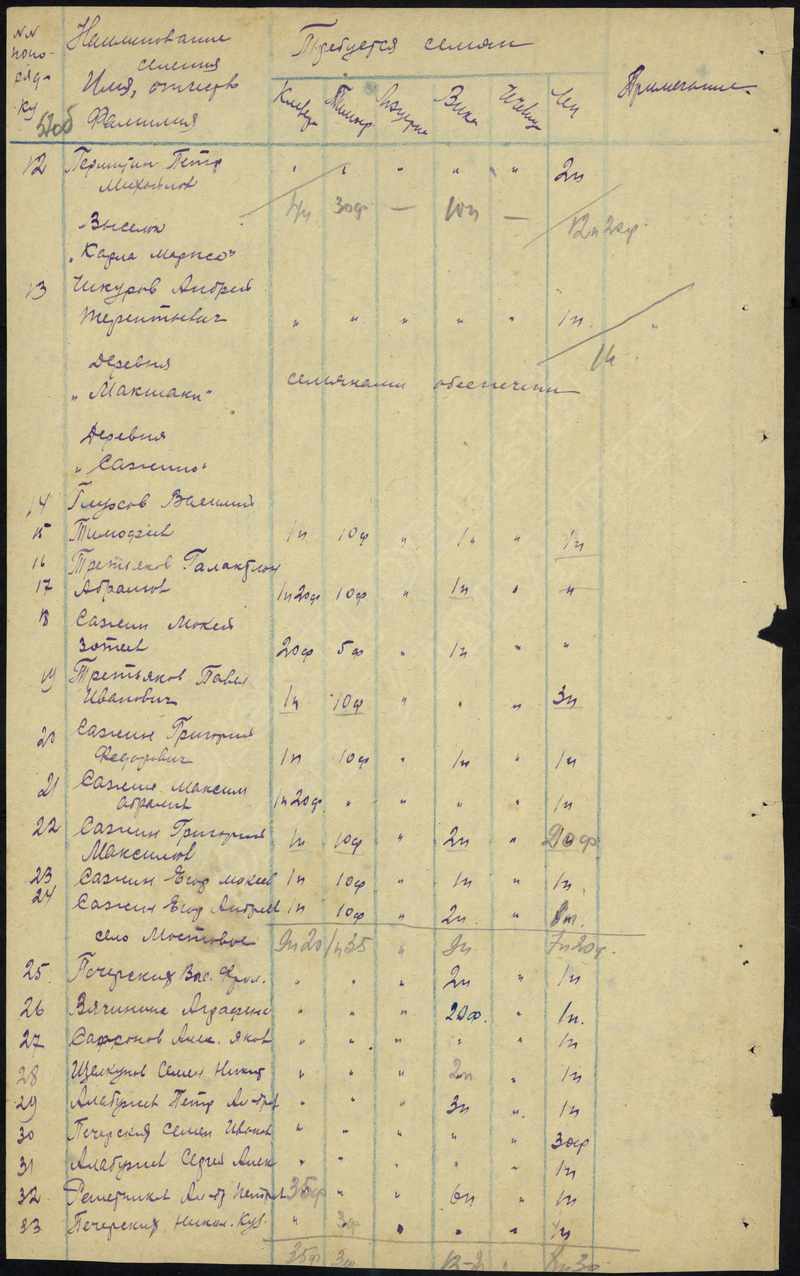 NN поря-сяд-ку Наименование селения Требуется семян Примечание
Имя, отчество
Фамилия Клевер Тимоф Люцерна Вика Чечев Лен
12 Петр " " " " " 2п
Михайлов
4п 30ф — 10п — 12п 20ф
Выселок
„Карла Маркса“
13 Шкуров Андрей
Терентьевич " " " " " 1п "
1п
Деревня
„Макшаки“ семянами обеспечены
Деревня
„Сажино“
14 Глухов Василий
15 Тимофеев 1п 10ф " 1п " 1п
16 Третьяков Галактион
17 Абрамов 1п20ф 10ф " 1п " "
18 Сажин Мокей
Зотеев 20ф 5ф " 1п " "
19 Третьяков Павел
Иванович 1п 10ф " " " 3п
20 Сажин Григорий
Федорович 1п 10ф " 1п " 1п
21 Сажин Максим
Абрамов 1п 20ф " " " " 1п
22 Сажин Григорий
Максимов 1п 10ф " 2п " 20ф
23 Сажин Егор Мокеев 1п 10ф " 1п " 1п
24 Сажин Егор Андреев 1п 10ф " 2п "
село Мостовое 9п20 1п35 " 9п 7п20ф
25 Печерских Вас. " " " 2п " 1п
26 Вячинина Аграфена " " " 20ф. " 1п.
27 Сафронов Алек. Яков " " " " " 1п
28 Щелкунов Семен Никит " " " 2п " 1п
29 Алабушев Петр " " " 3п " 1п
30 Печерский Семен Иванов " " " " " 30ф
31 Алабушев Сергей Алек " " " " " 1п
32 Решетников Петров 35ф " " 6п " 1п
33 Печерских Никол. Куз. " 3ф " " " 1п
35ф 3ф 8п30